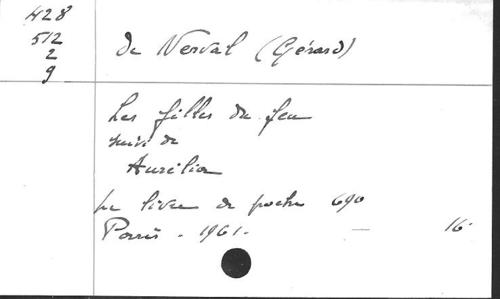 428
512
2
9
de Nerval (Gérard)
Les filles du feu
suivi de
Aurélia
Le livre de poche 690
Paris - 1961. — 16